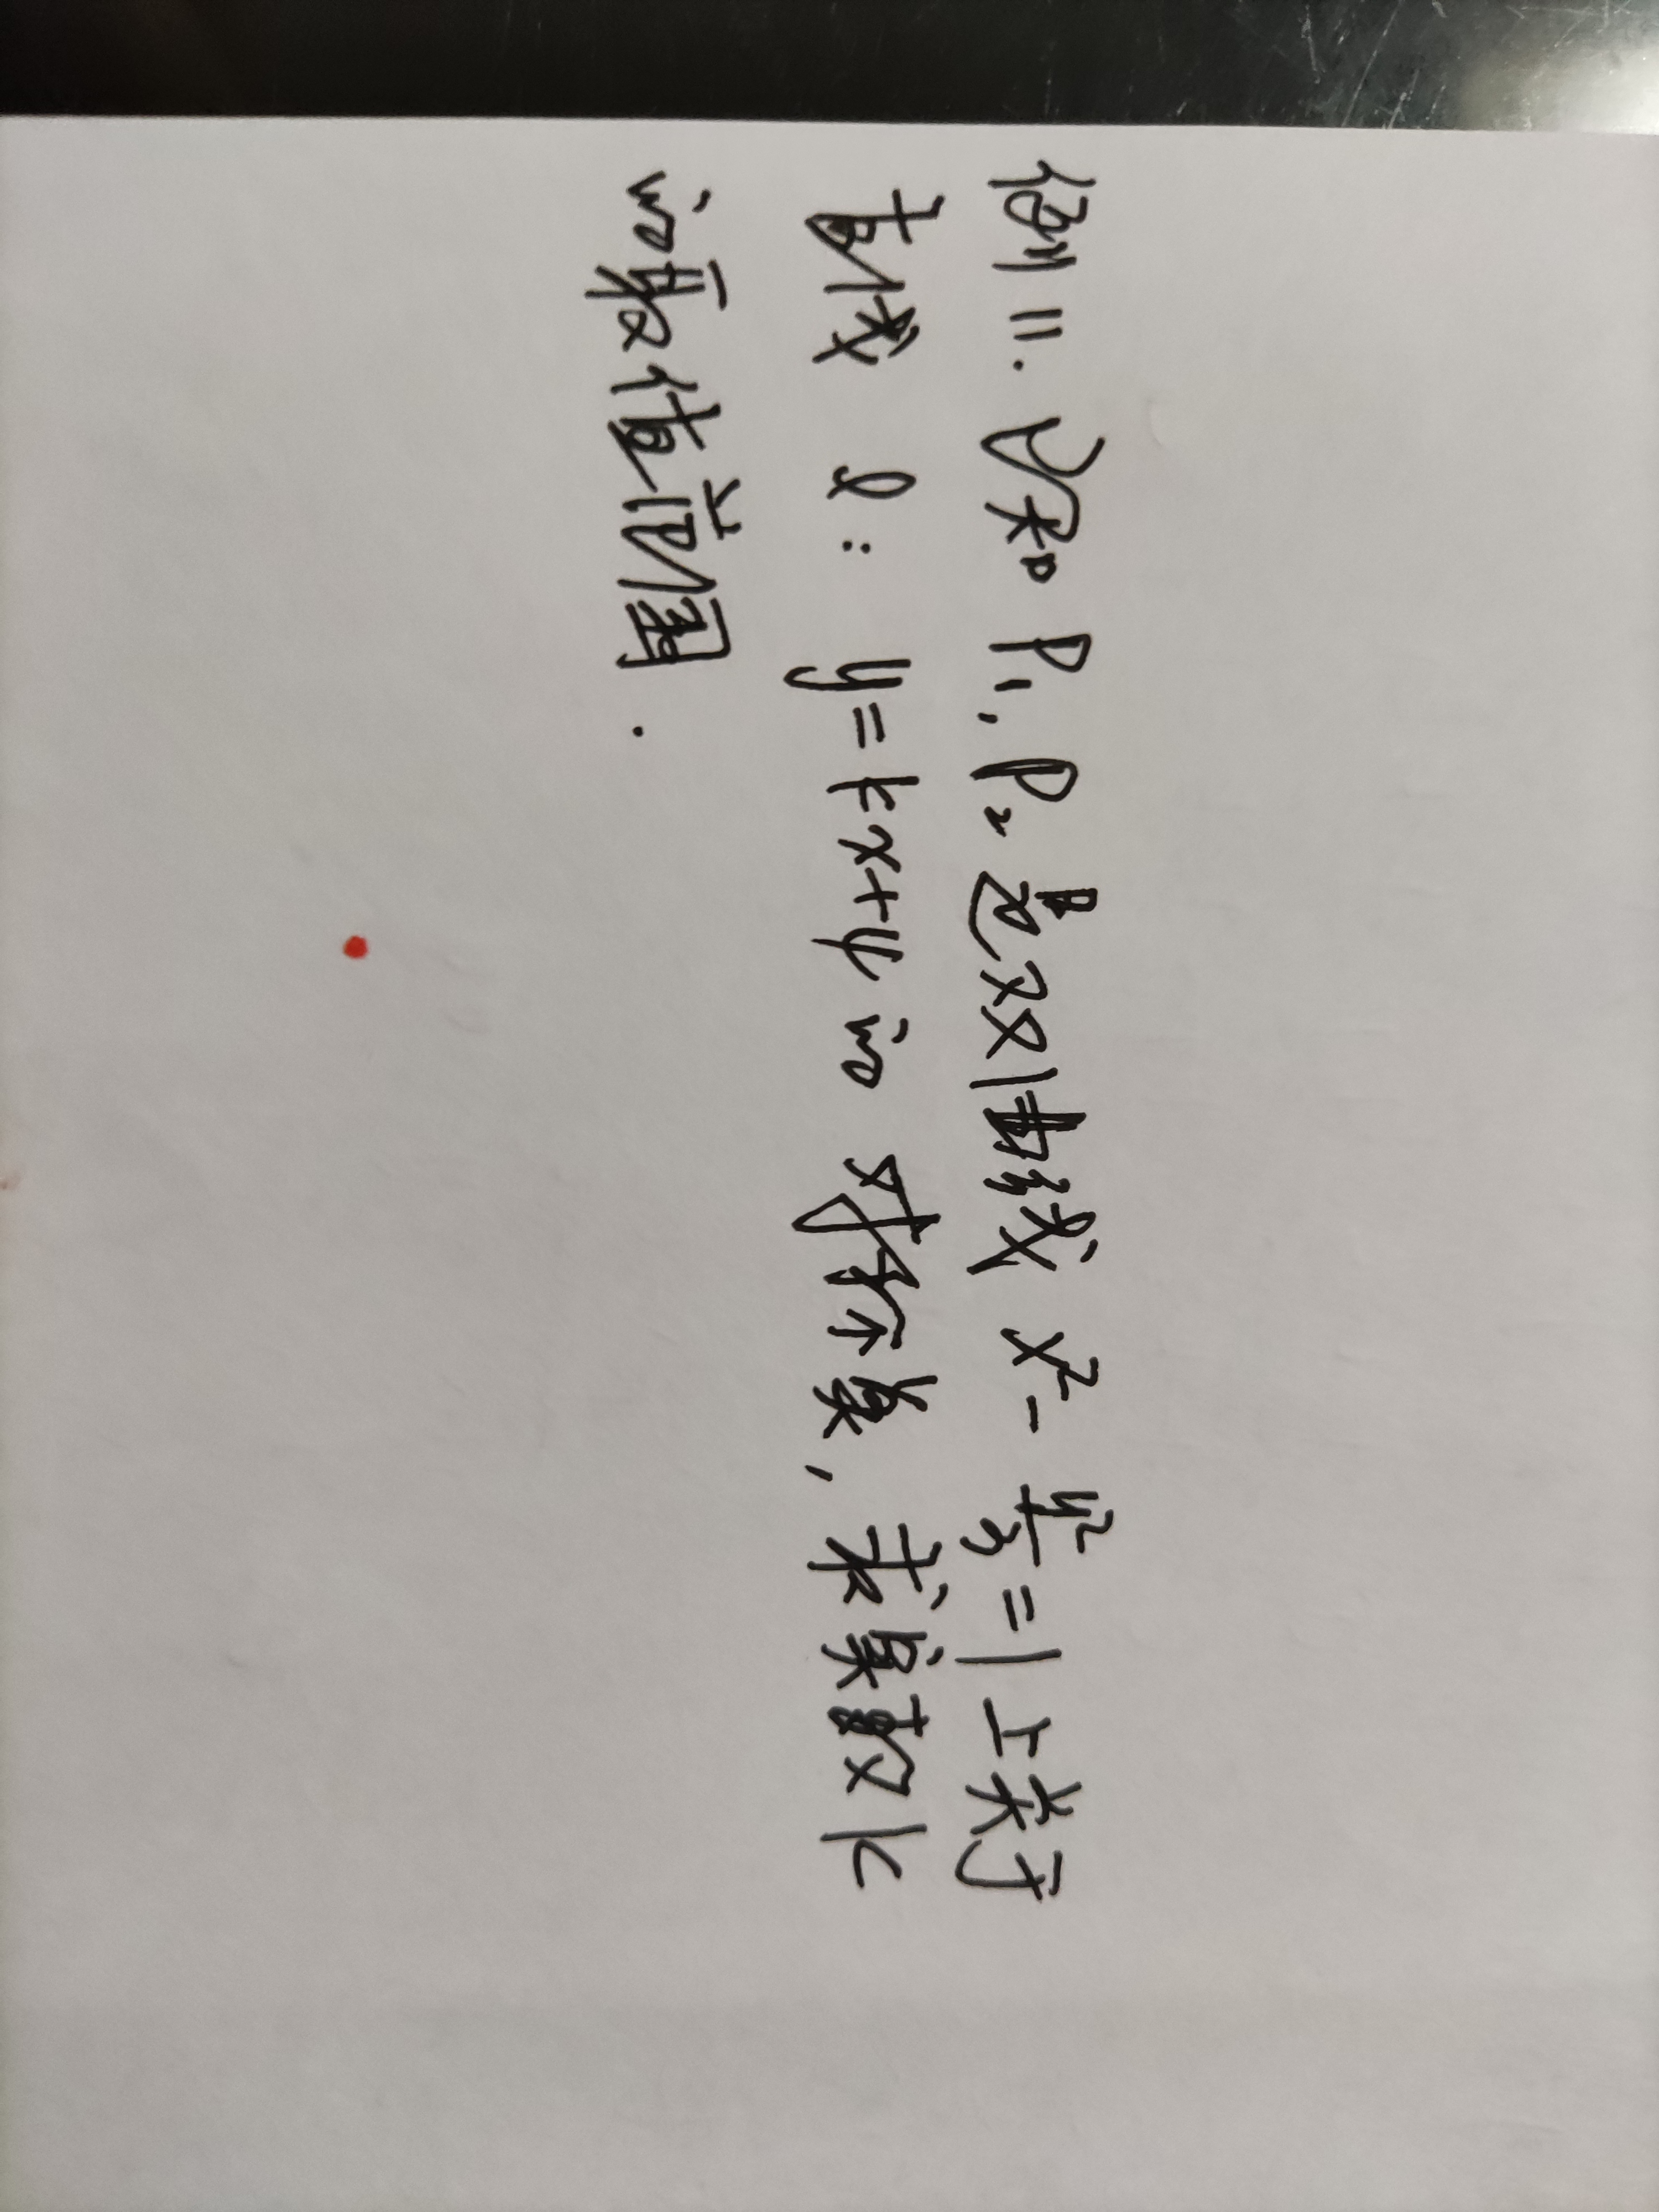 例11. 已知 P₁, P₂ 是双曲线 x² - y²/3 = 1 上关于
直线 l: y=kx+4 的对称点, 求实数 k
的取值范围.